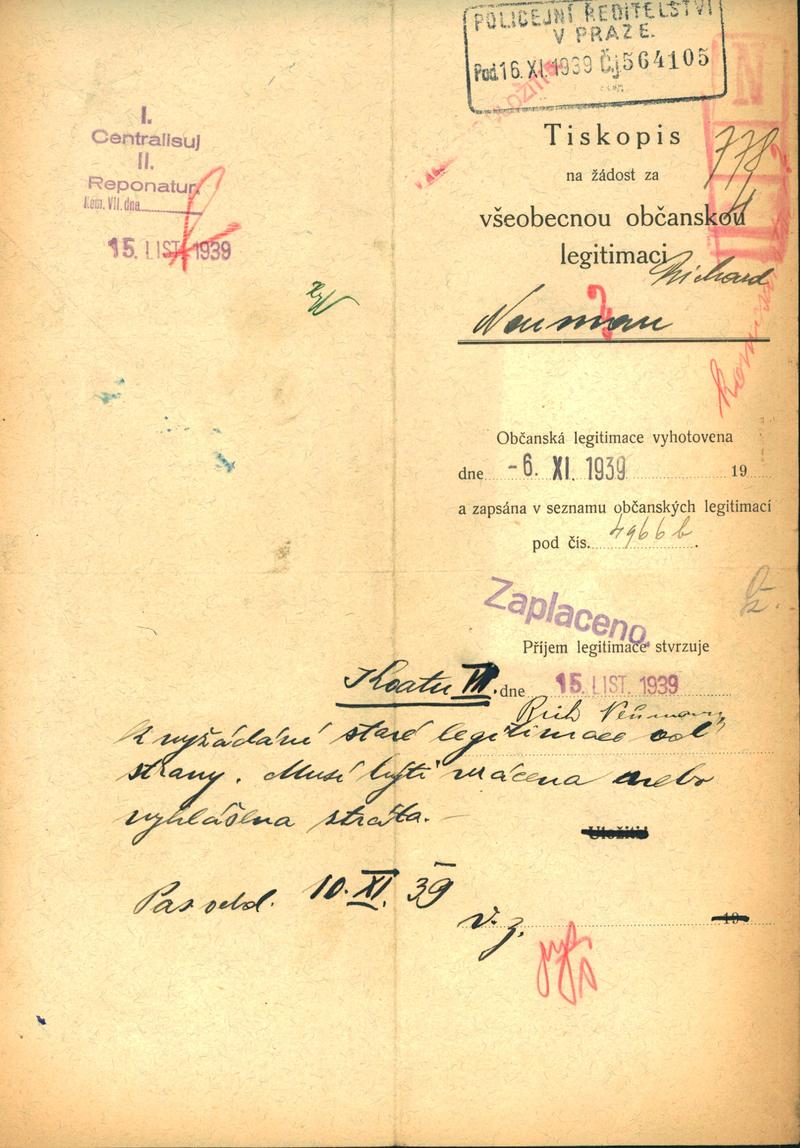 POLICEJNÍ ŘEDITELSTVÍ
V PRAZE.
Pod 16 XI. 1939 Čj 564105
I.
Centralisuj
II.
Reponatur
Kom. VII. dna
15. LIST. 1939
N
778
Tiskopis
na žádost za
všeobecnou občanskou
legitimaci
Richard
Neuman
Občanská legitimace vyhotovena
dne -6. XI. 1939 19
a zapsána v seznamu občanských legitimací
pod čís. 4966 b.
Zaplaceno
Příjem legitimace stvrzuje
Koatu VII. dne 15. LIST. 1939
k vyžádání staré legitimace od
strany. Musí býti vrácena nebo
vyhlášena ztráta.
Uložiti
Pas odd. 10. XI. 39
v. z. 19